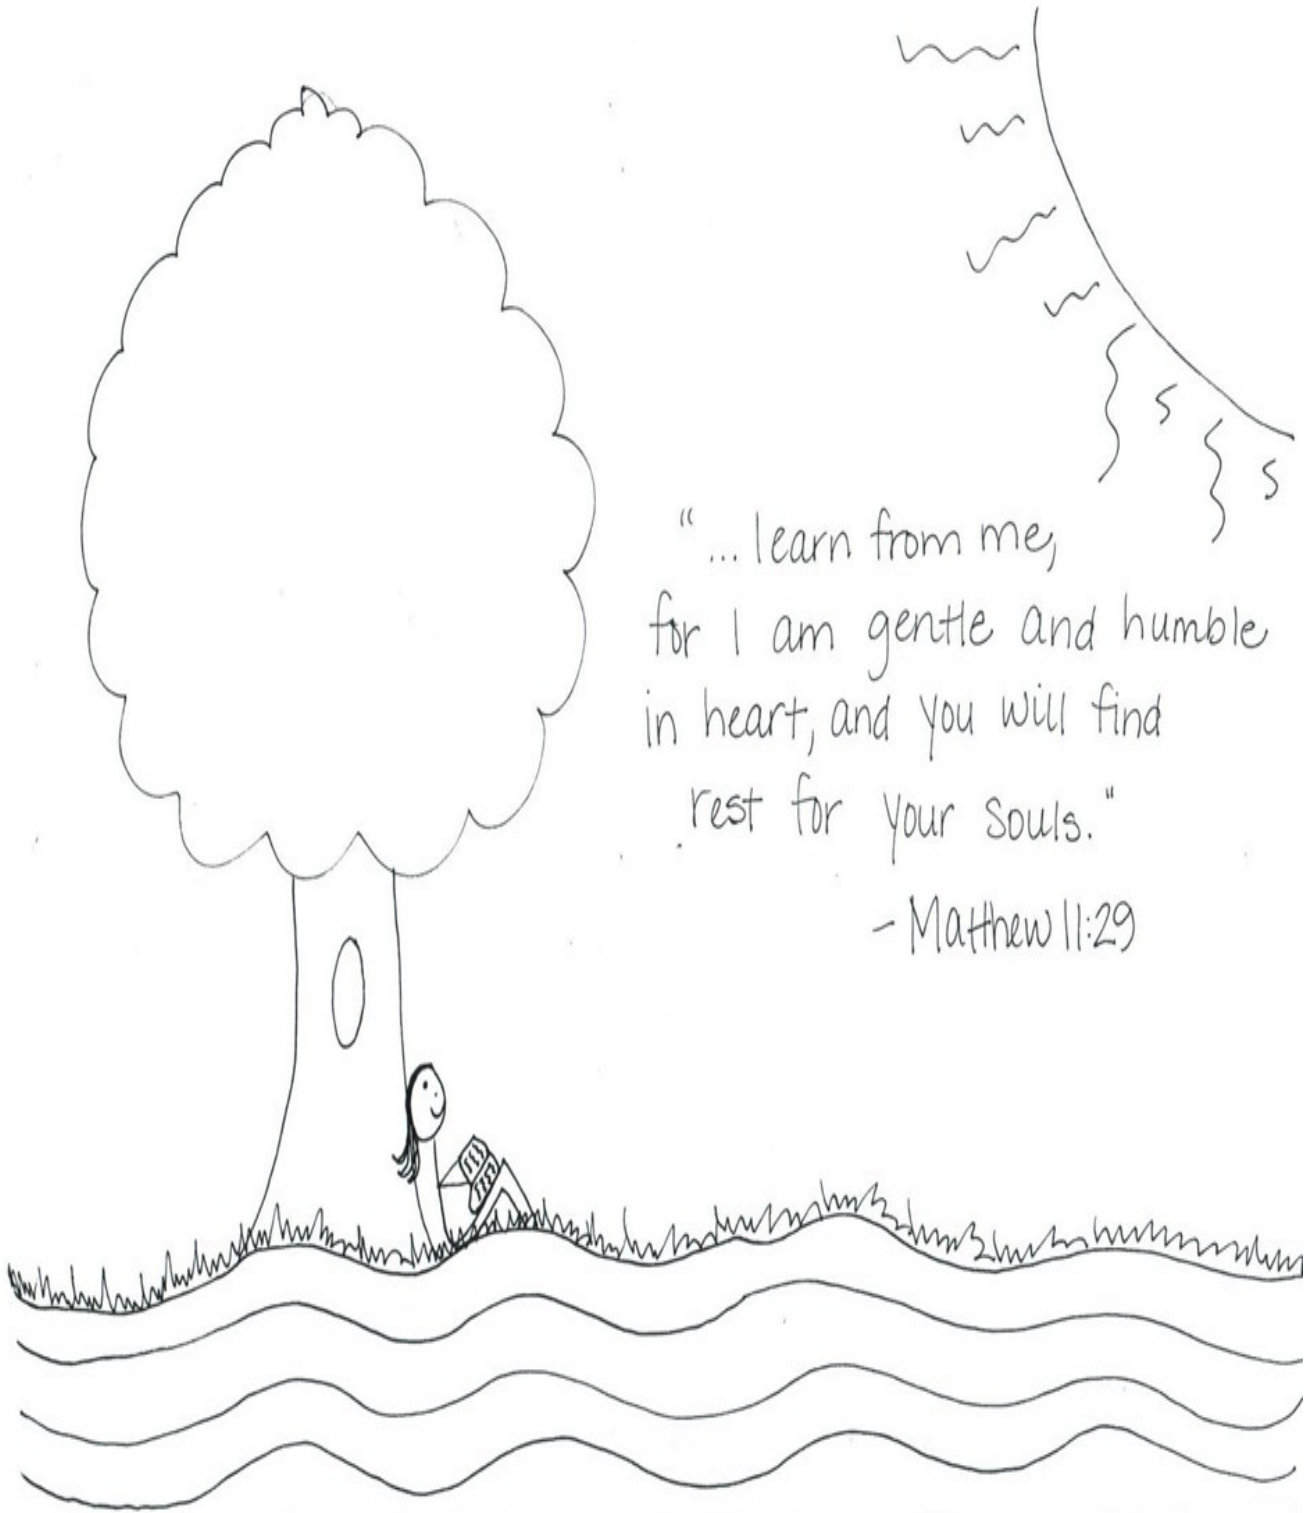 "... learn from me,
for I am gentle and humble
in heart, and you will find
rest for your souls."
- Matthew 11:29